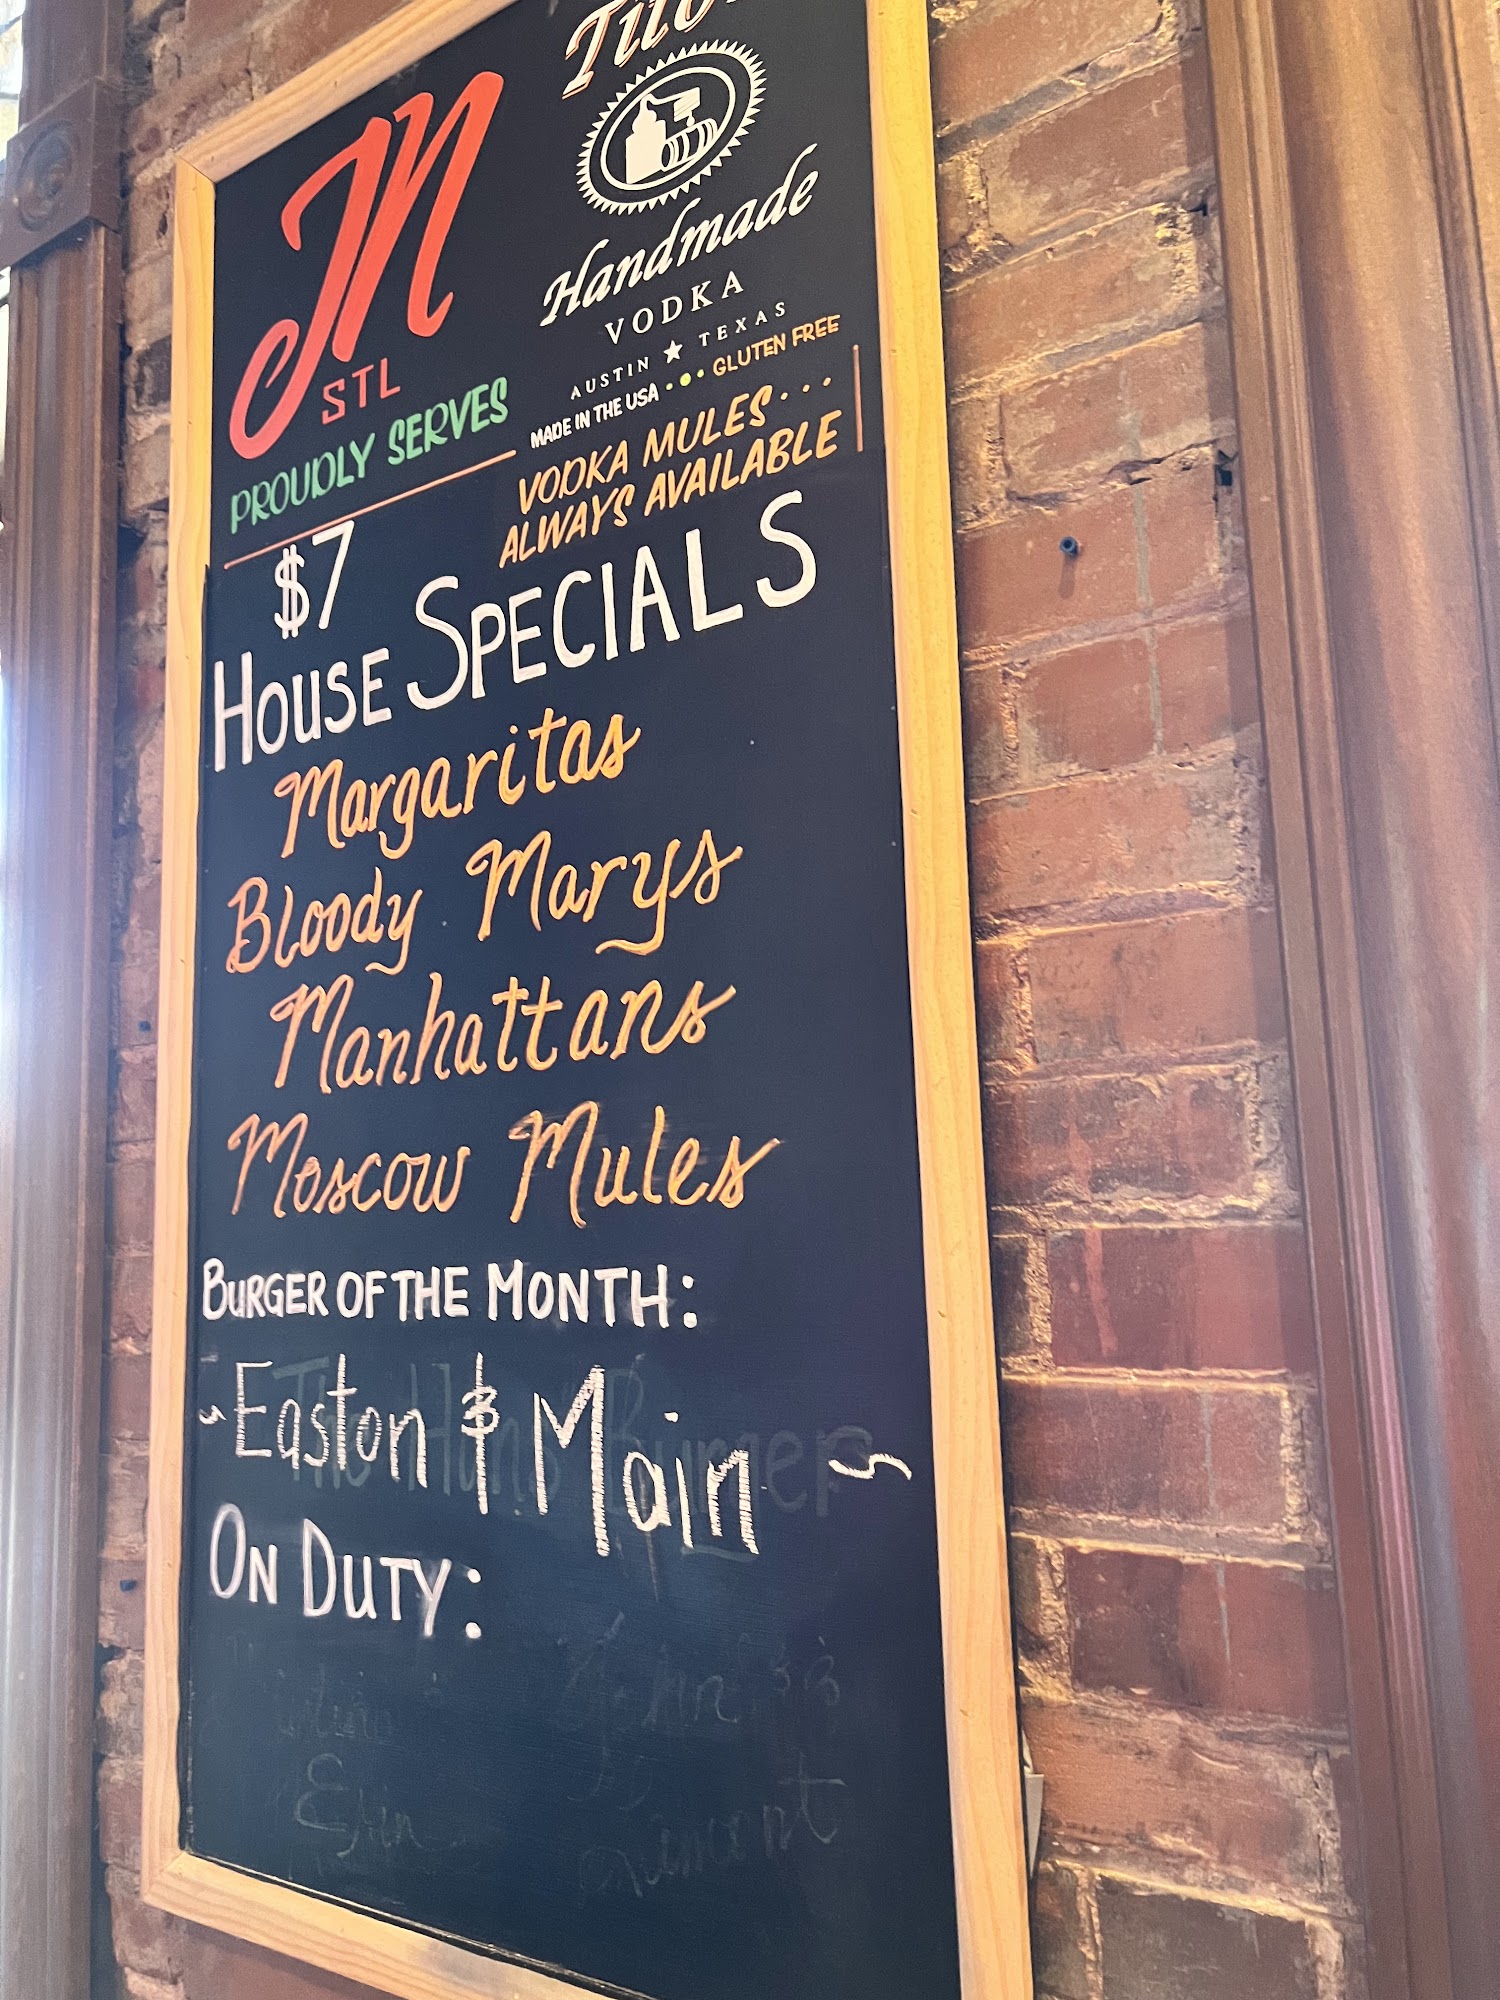 M
STL
PROUDLY SERVES
Tito
Handmade
VODKA
AUSTIN ★ TEXAS
MADE IN THE USA • • • GLUTEN FREE
VODKA MULES...
ALWAYS AVAILABLE
$7
HOUSE SPECIALS
Margaritas
Bloody Marys
Manhattans
Moscow Mules
BURGER OF THE MONTH:
~Easton & Main~
ON DUTY:
Erin